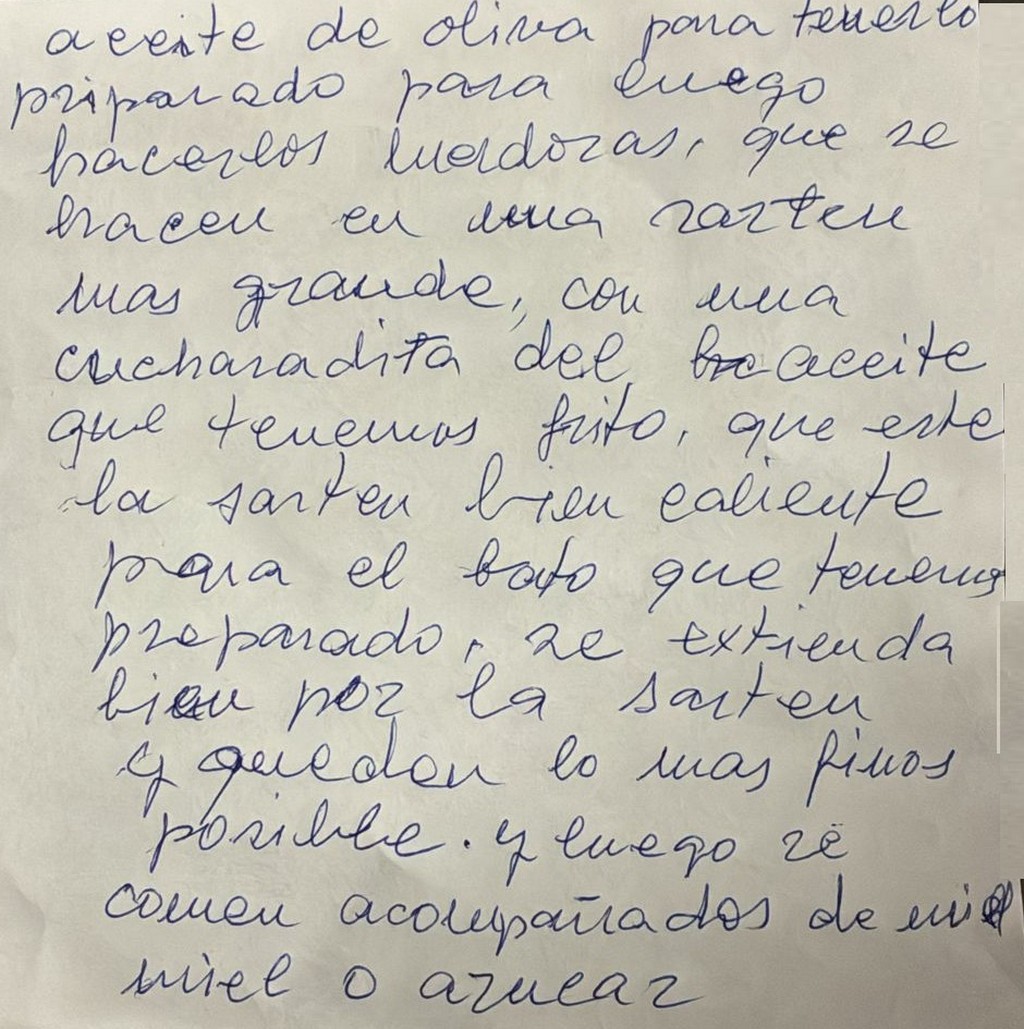 aceite de oliva para tenerlo
priparado para luego
hacerlos
que se
hacen en una sarten
mas grande, con una
cucharadita del aceite
que tenemos frito, que este
la sarten bien caliente
para el bato que tenemos
preparado, se extienda
bien por la sarten
y quedan lo mas finos
posible. y luego se
comen acompañados de miel
miel o azucar